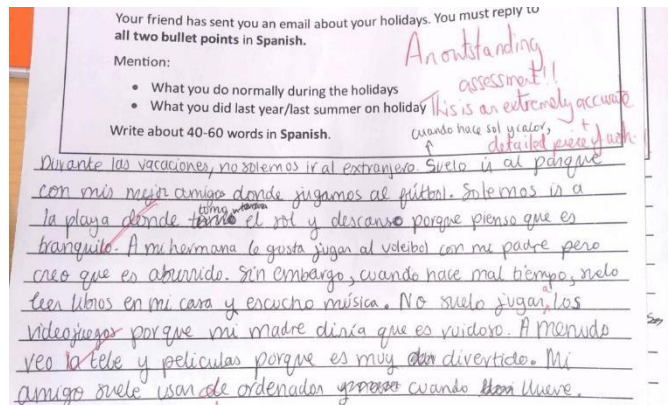 Your friend has sent you an email about your holidays. You must reply to
all two bullet points in Spanish.
Mention:
• What you do normally during the holidays
• What you did last year/last summer on holiday
Write about 40-60 words in Spanish.
An outstanding
assessment!!
This is an extremely accurate
detailed piece of work.
cuando hace sol y calor,
Durante las vacaciones, no solemos ir al extranjero. Suelo ir al parque
con mis mejor amigo donde jugamos al fútbol. Solemos ir a
la playa donde tomo el sol y descanso porque pienso que es
tranquilo. A mi hermana le gusta jugar al voleibol con mi padre pero
creo que es aburrido. Sin embargo, cuando hace mal tiempo, suelo
leer libros en mi casa y escucho música. No suelo jugar a los
videojuegos porque mi madre diría que es ruidoso. A menudo
veo la tele y películas porque es muy divertido. Mi
amigo suele usar de ordenador cuando llueve.